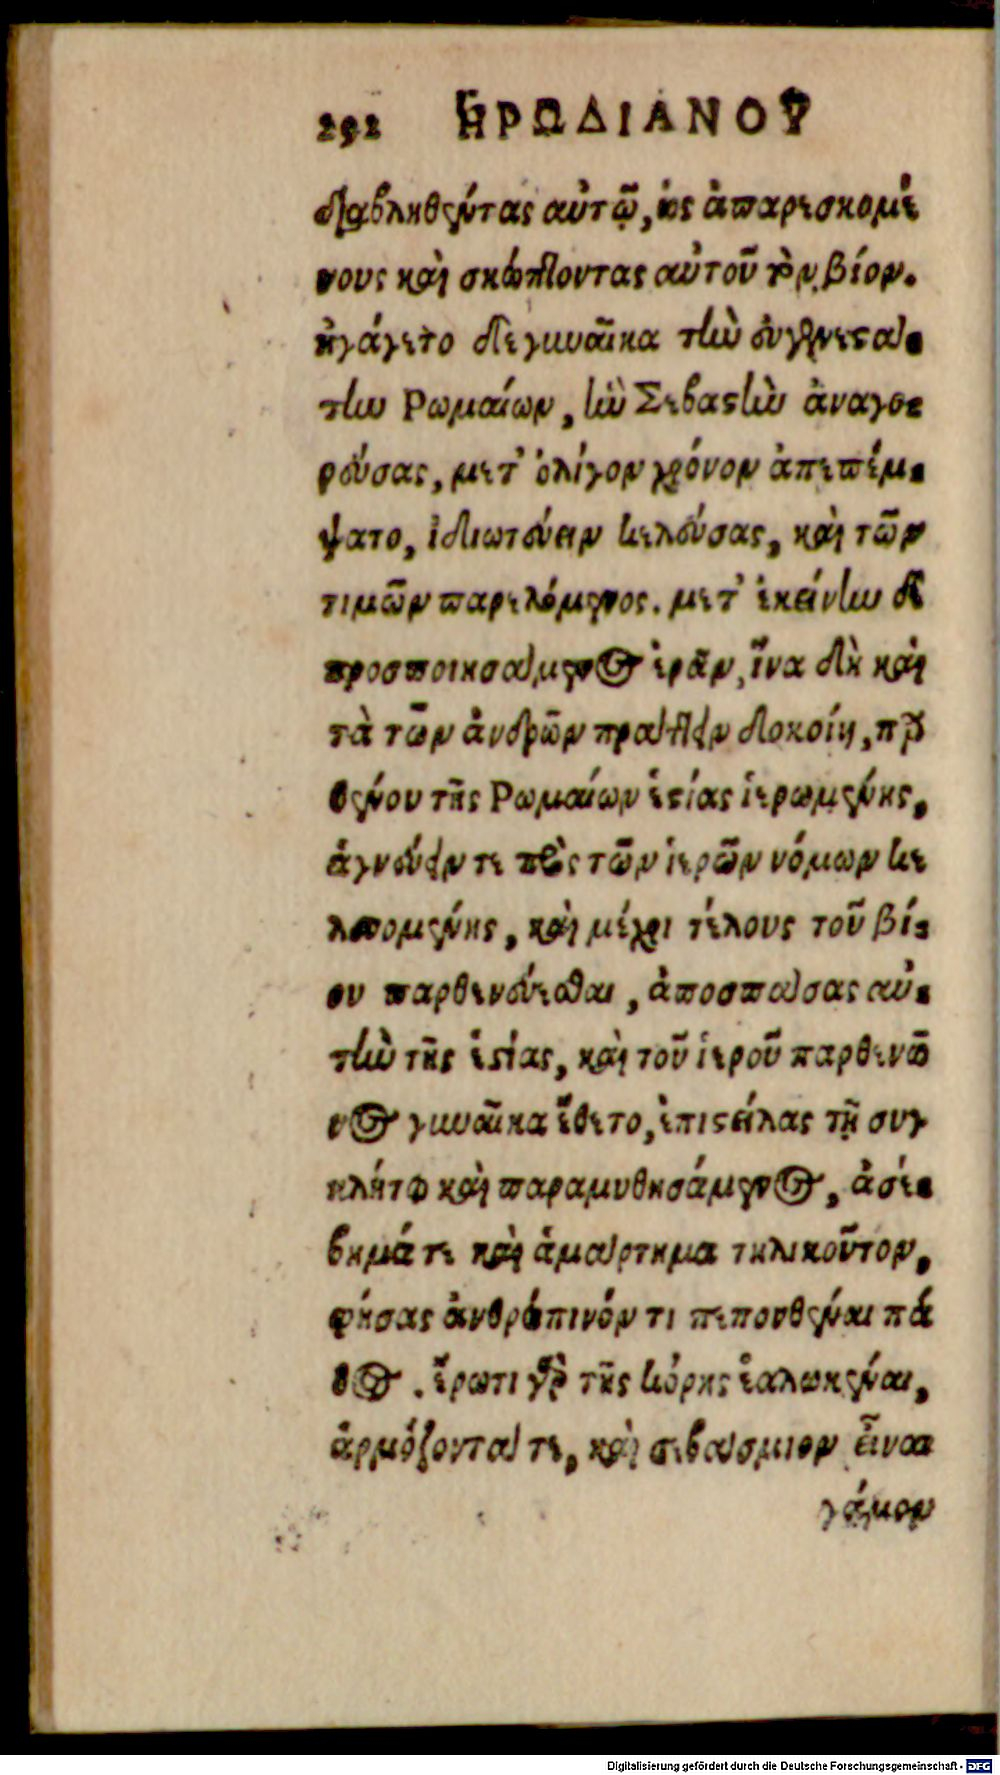 292 ΗΡΩΔΙΑΝΟΥ
διαβληθέντας αὐτῷ, ὡς ἀπαρεσκομέ
νους καὶ σκώπτοντας αὐτοῦ τὸν βίον.
ἠγάγετο δὲ γυναῖκα τὴν εὐγενεστά-
την Ρωμαίων, ἣν Σεβαστὴν ἀναγο-
ρεύσας, μετ' ὀλίγον χρόνον ἀπεπέμ-
ψατο, ἰδιωτεύειν κελεύσας, καὶ τῶν
τιμῶν παρελόμενος. μετ' ἐκείνην δὲ
προσποιησάμενος ἐρᾶν, ἵνα δὴ καὶ
τὰ τῶν ἀνδρῶν πράττειν δοκοίη, παρ
θένου τῆς Ρωμαίων ἑστίας ἱερωμένης,
ἁγνεύειν τε πρὸς τῶν ἱερῶν νόμων κε
λευομένης, καὶ μέχρι τέλους τοῦ βί-
ου παρθενεύεσθαι, ἀποσπάσας αὐ-
τὴν τῆς ἑστίας, καὶ τοῦ ἱεροῦ παρθενῶ
νος γυναῖκα ἔθετο, ἐπιστείλας τῇ συγ
κλήτῳ καὶ παραμυθησάμενος, ἀσέ-
βημά τε καὶ ἁμάρτημα τηλικοῦτον,
φήσας ἀνθρώπινόν τι πεπονθέναι πά
θος. ἔρωτι γὰρ τῆς κόρης ἑαλωκέναι,
ἁρμόζοντά τε, καὶ σεβάσμιον εἶναι
γάμον
Digitalisierung gefördert durch die Deutsche Forschungsgemeinschaft - DFG